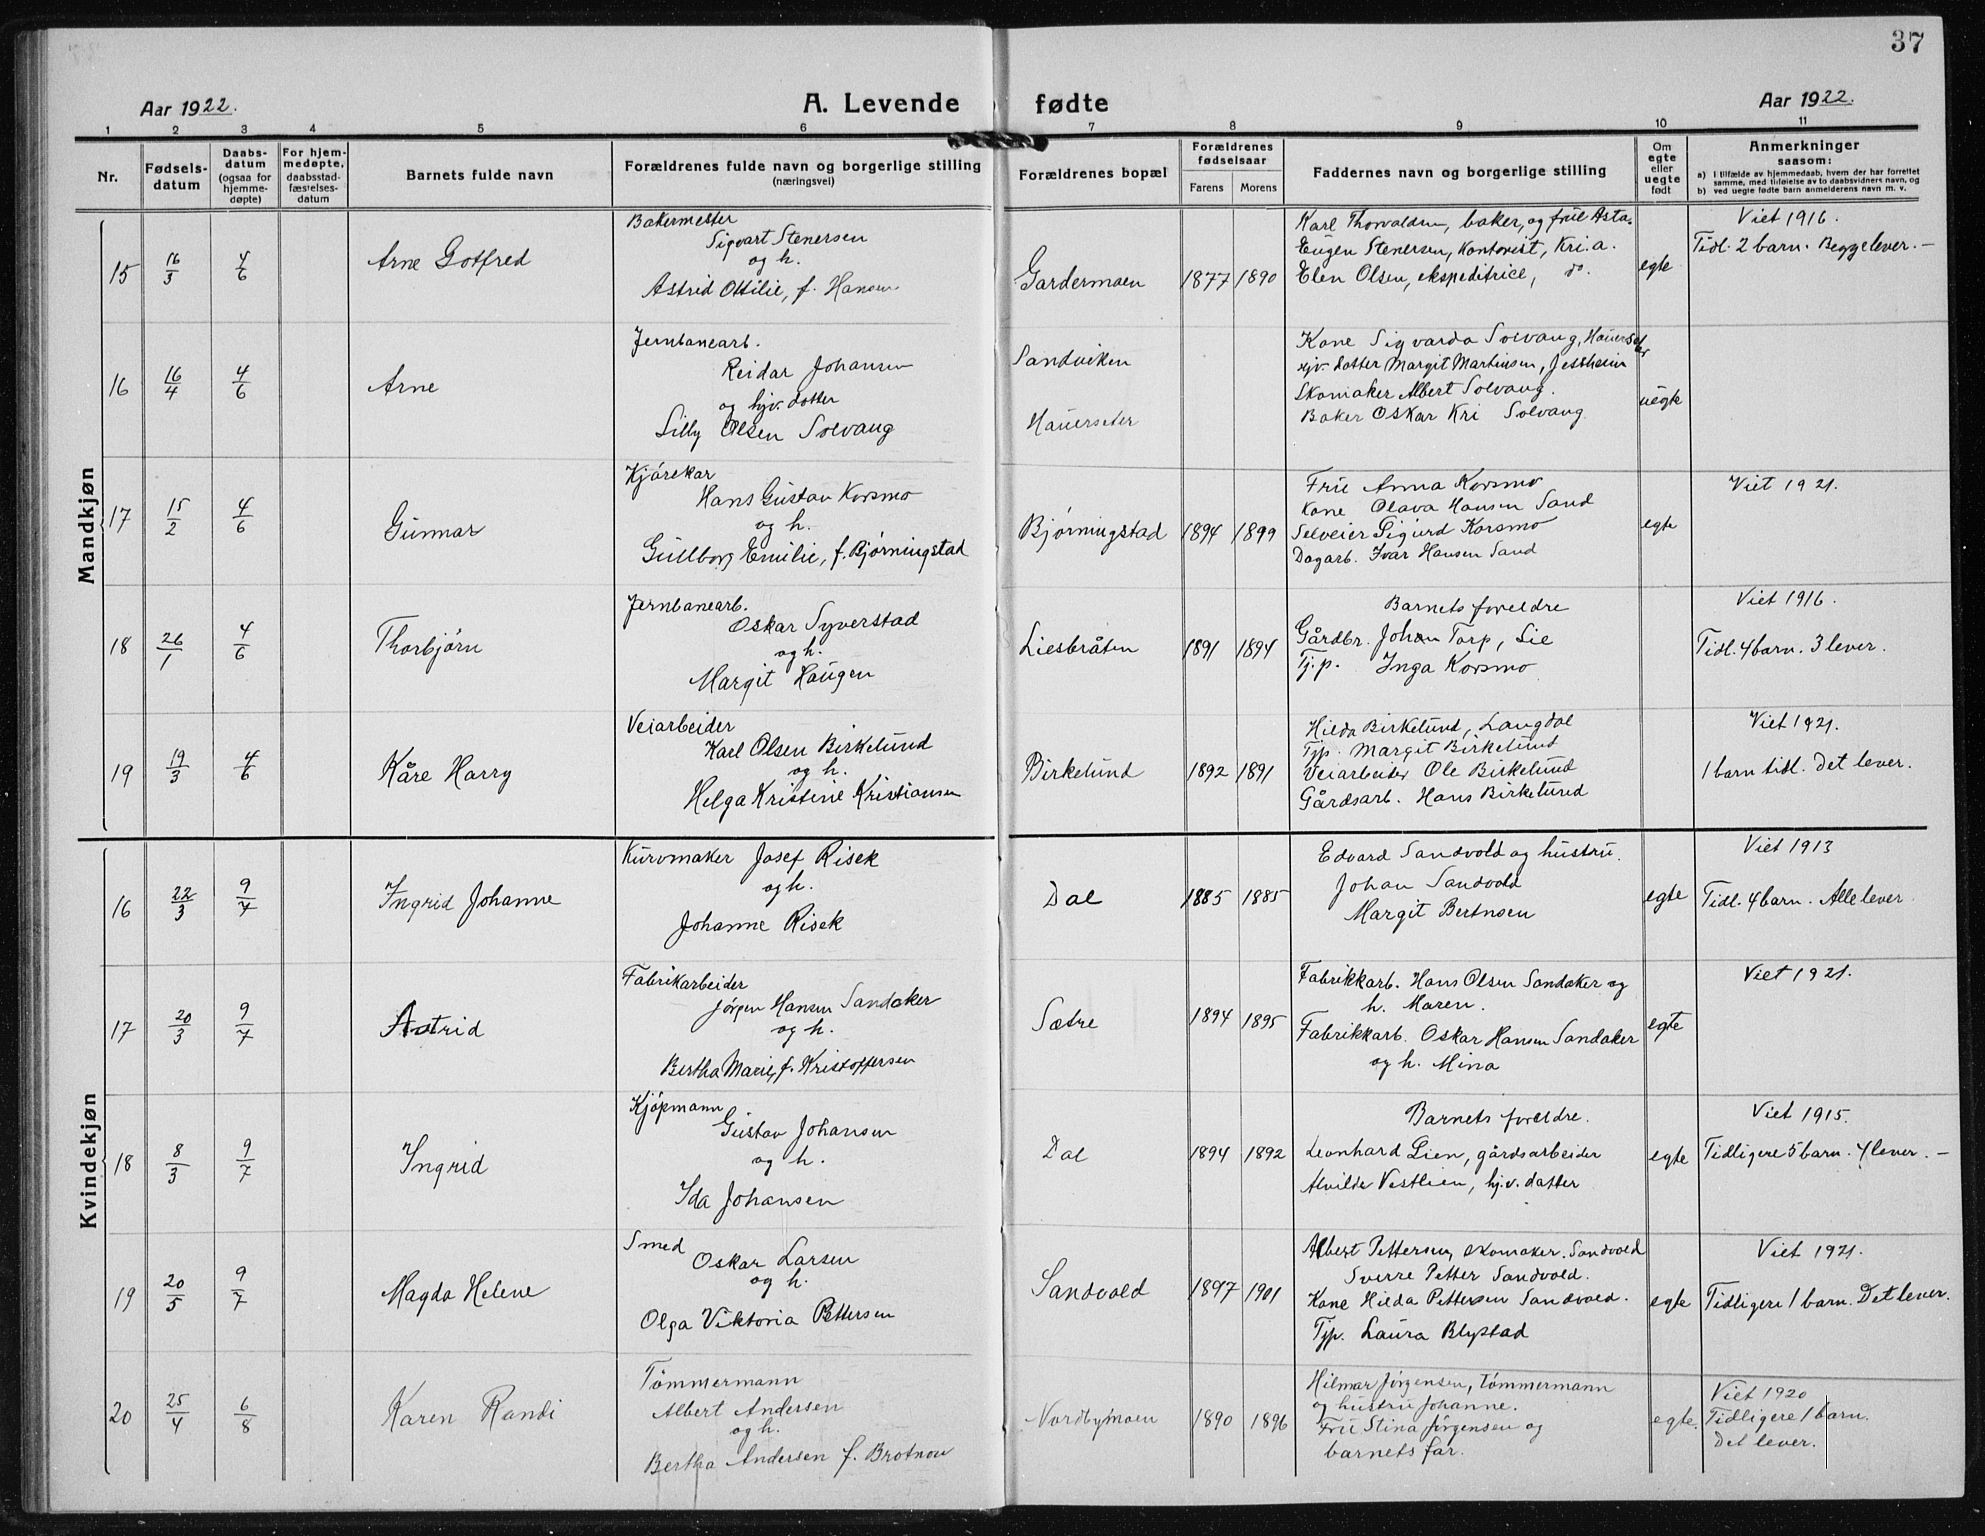 37
Aar 1922. A. Levende fødte Aar 1922.
1 2 3 4 5 6 7 8 9 10 11
Nr. Fødsels-datum Daabs-datum (ogsaa for hjemme-døpte) For hjem-medøpte, daabsstad-fæstelses-datum Barnets fulde navn Forældrenes fulde navn og borgerlige stilling (næringsvei) Forældrenes bopæl Forældrenes fødselsaar Farens Morens Faddernes navn og borgerlige stilling Om egte eller uegte født Anmerkninger saasom:
a) I tilfælde av hjemmedaab, hvem der har forrettet samme, med tilføielse av to daabsvidners navn, og
b) ved uegte fødte barn anmelderens navn m. v.
Mandkjøn
15 16/3 4/6 Arne Gotfred
Bakermester
Sigvart Stenersen
og h.
Astrid Ottilie, f. Hansen
Gardermoen 1877 1890
Karl Thorvaldsen, baker, og frue Asta.
Eugen Stenersen, Kontorist, Kri.a.
Elen Olsen, ekspeditrice, do.
egte
Viet 1916.
Tidl. 2 barn. Begge lever. —
16 16/4 4/6 Arne
Jernbanearb.
Reidar Johansen
og hjv. dotter
Lilly Olsen Solvang
Sandviken
Hauerseter
Kone Sigvarda Solvang, Hauerseter
hjv. dotter Margit Martinsen, Jessheim
Skomaker Albert Solvang.
Baker Oskar Kri Solvang
uegte
17 15/2 4/6 Gunnar
Kjörekar
Hans Gustav Korsmo
og h.
Gullborg Emilie, f. Bjørningstad
Bjørningstad 1894 1899
Frue Anna Korsmo
Kone Olava Hansen Sand
Selveier Sigurd Korsmo
Dagarb. Ivar Hansen Sand
egte
Viet 1921.
18 26/1 4/6 Thorbjörn
Jernbanearb.
Oskar Syverstad
og h.
Margit Haugen
Liesbråten 1891 1894
Barnets foreldre
Gårdbr. Johan Torp, Lie
Tj.p. Inga Korsmo
Viet 1916.
Tidl. 4 barn. 3 lever.
19 19/3 4/6 Kåre Harry
Veiarbeider
Karl Olsen Birkelund
og h.
Helga Kristine Kristiansen
Birkelund 1892 1891
Hilda Birkelund, Langdal
Tjp. Margit Birkelund
Veiarbeider Ole Birkelund
Gårdsarb. Hans Birkelund
Viet 1921.
1 barn tidl. Det lever.
Kvindekjøn
16 22/3 9/7 Ingrid Johanne
Kurvmaker Josef Risek
og h.
Johanne Risek
Dal 1885 1885
Edvard Sandvold og hustru.
Johan Sandvold
Margit Berntsen
egte
Viet 1913
Tidl. 4 barn. Alle lever.
17 20/3 9/7 Astrid
Fabrikarbeider
Jörgen Hansen Sandaker
og h.
Bertha Marie, f. Kristoffersen
Sætre 1894 1895
Fabrikkarb. Hans Olsen Sandaker og
h. Maren.
Fabrikkarb. Oskar Hansen Sandaker
og h. Mina
egte
Viet 1921.
18 8/3 9/7 Ingrid
Kjöpmann
Gustav Johansen
og h.
Ida Johansen
Dal 1894 1892
Barnets foreldre.
Leonhard Lien, gårdsarbeider
Alvilde Vestlien, hj.v. datter
egte
Viet 1915.
Tidligere 5 barn. 4 lever. —
19 20/5 9/7 Magda Helene
Smed
Oskar Larsen
og h.
Olga Viktoria Pettersen
Sandvold 1897 1901
Albert Pettersen, skomaker. Sandvold
Sverre Petter Sandvold.
Kone Hilda Pettersen Sandvold.
Tjp. Laura Blystad
egte
Viet 1921.
Tidligere 1 barn. Det lever.
20 25/4 6/8 Karen Randi
Tömmermann
Albert Andersen
og h.
Bertha Andersen f. Brotnow
Nordbymoen 1890 1896
Hilmar Jörgensen, tömmermann
og hustru Johanne.
Fru Stina Jörgensen og
barnets far.
egte.
Viet 1920
Tidligere 1 barn.
Det lever.